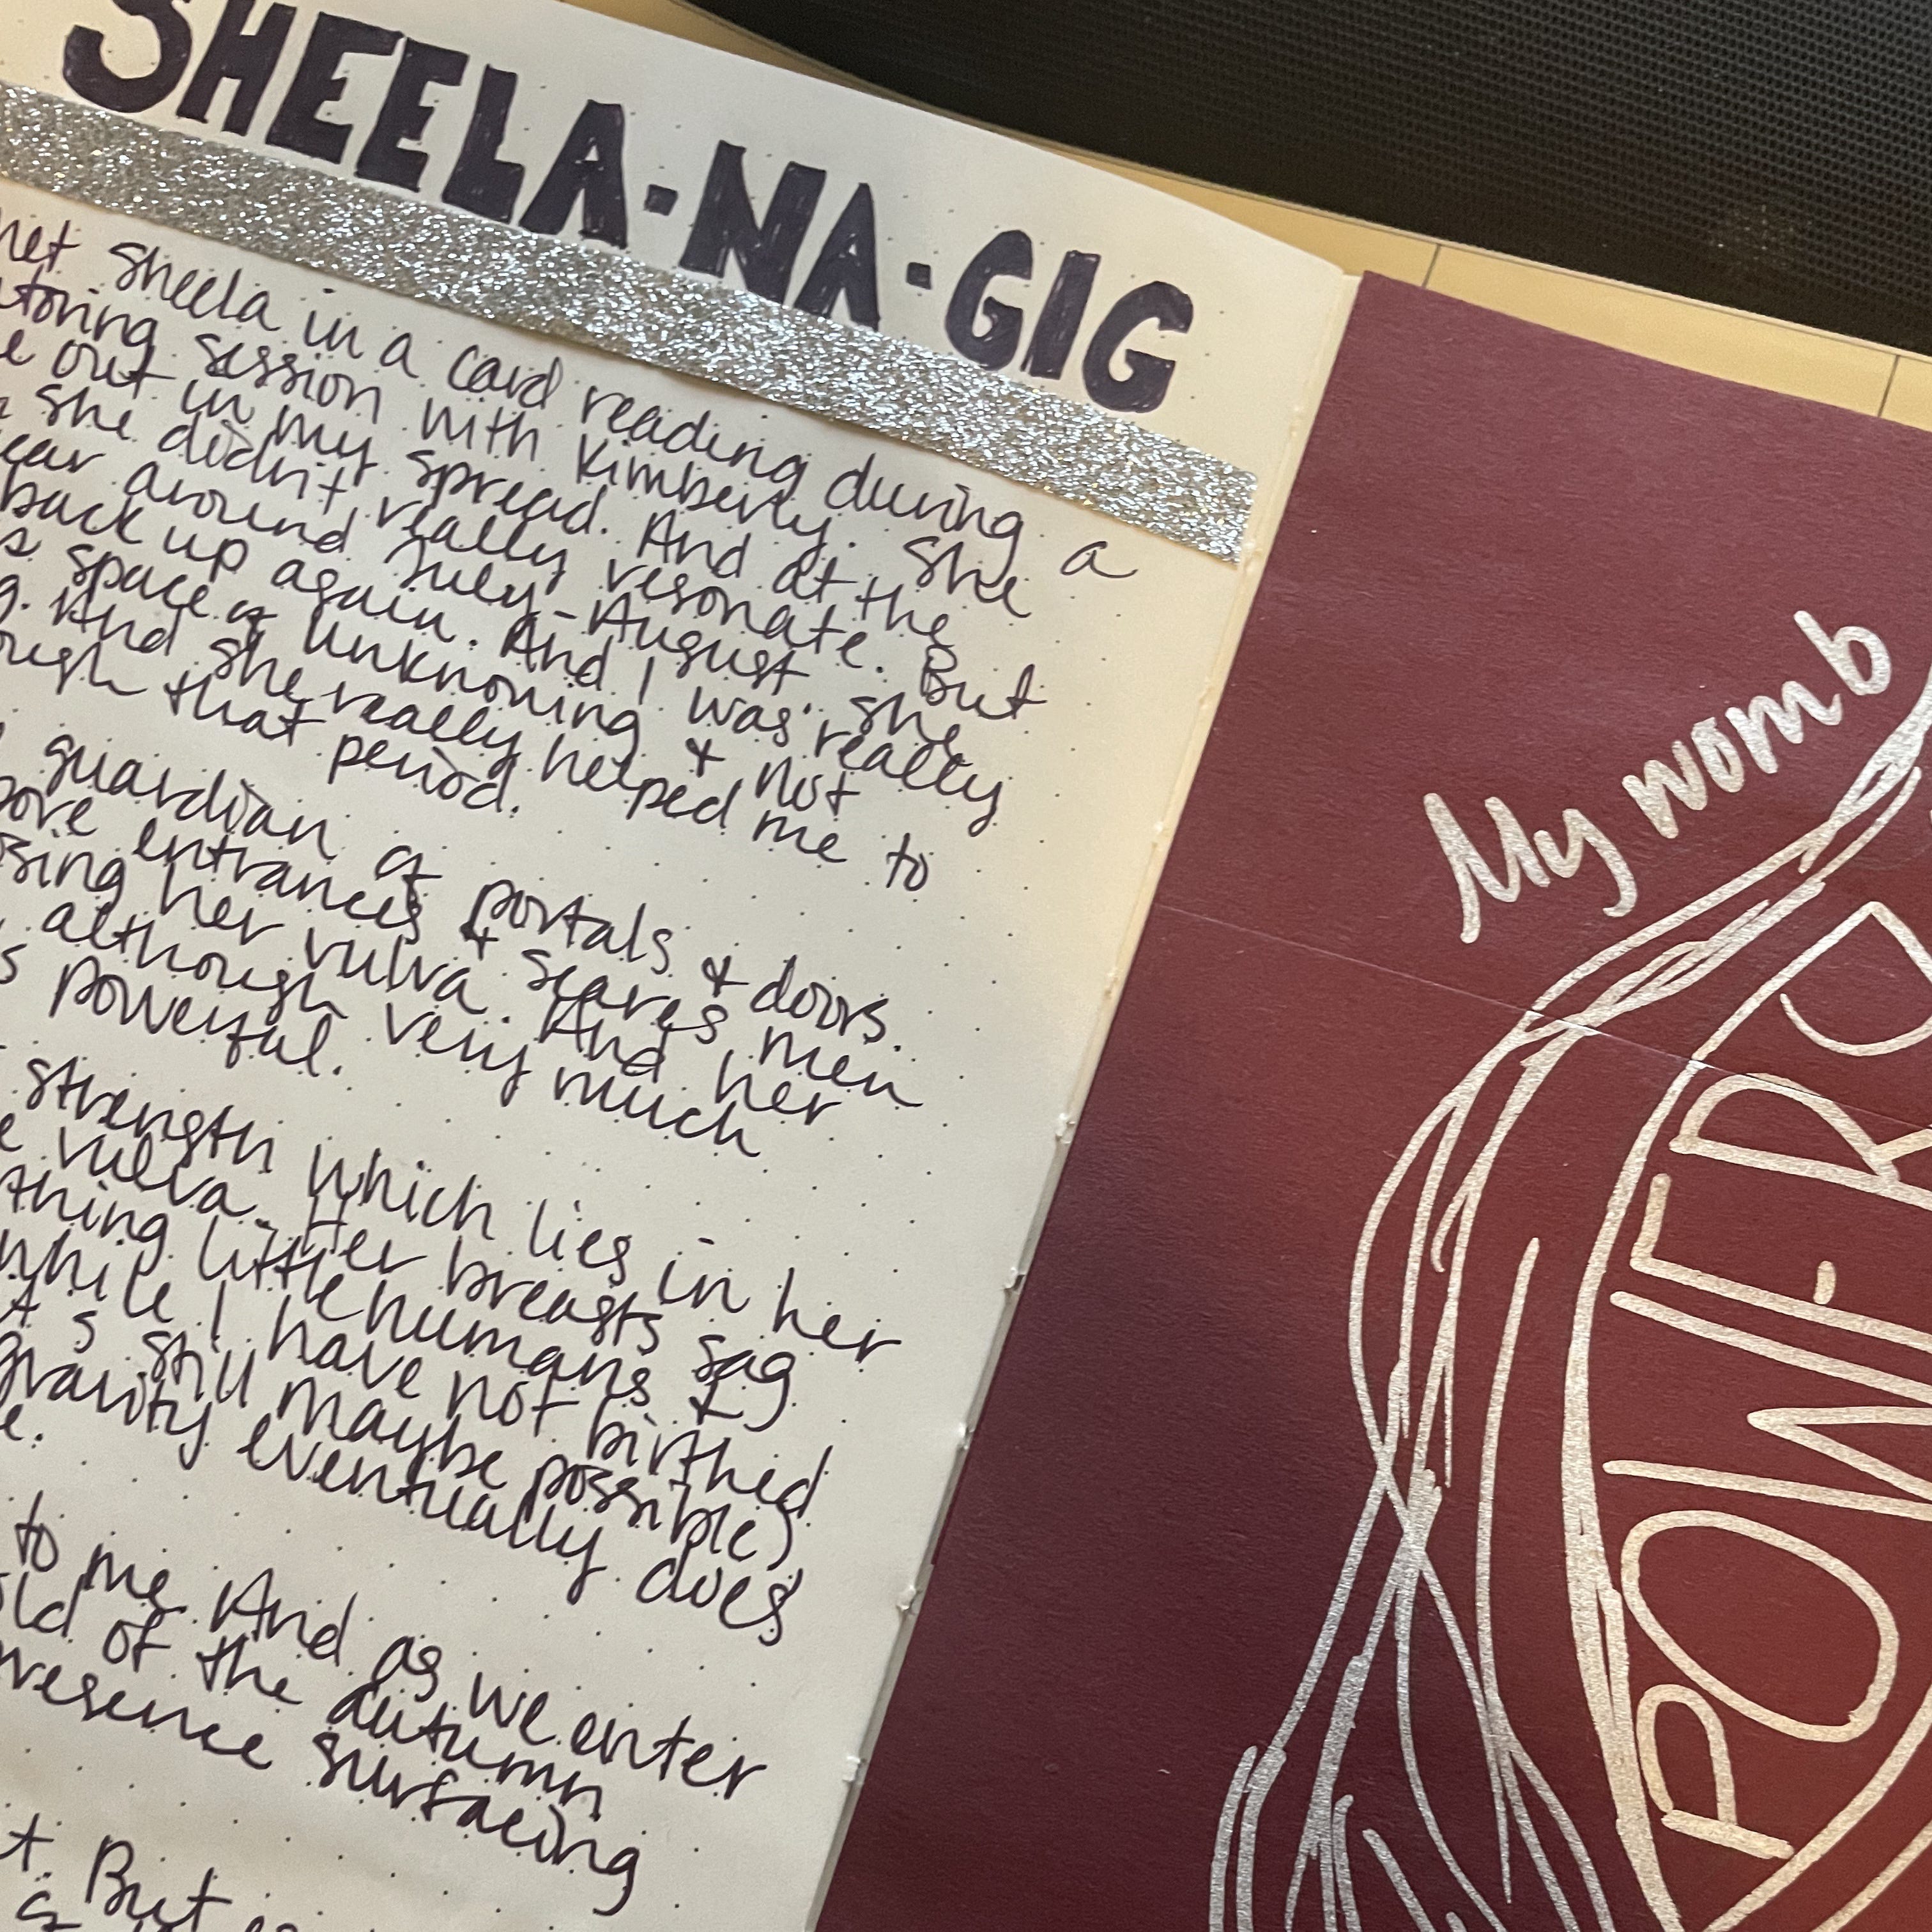 SHEELA·NA·GIG
met sheela in a card reading during a
session with Kimberly. She
out in my spread. And at the
she didn't really resonate. But
around July-August, she
back up again. And I was really
space of unknowing & not
And she really helped me to
that period.
guardian of portals & doors.
entrances & scares men
her vulva. And her
although very much
powerful.
strength which lies in her
vulva. Her breasts sag
thing little humans &
while I have not birthed
still maybe possible)
gravity eventually does
to me. And as we enter
of the autumn
presence surfacing
But
My womb
POWER